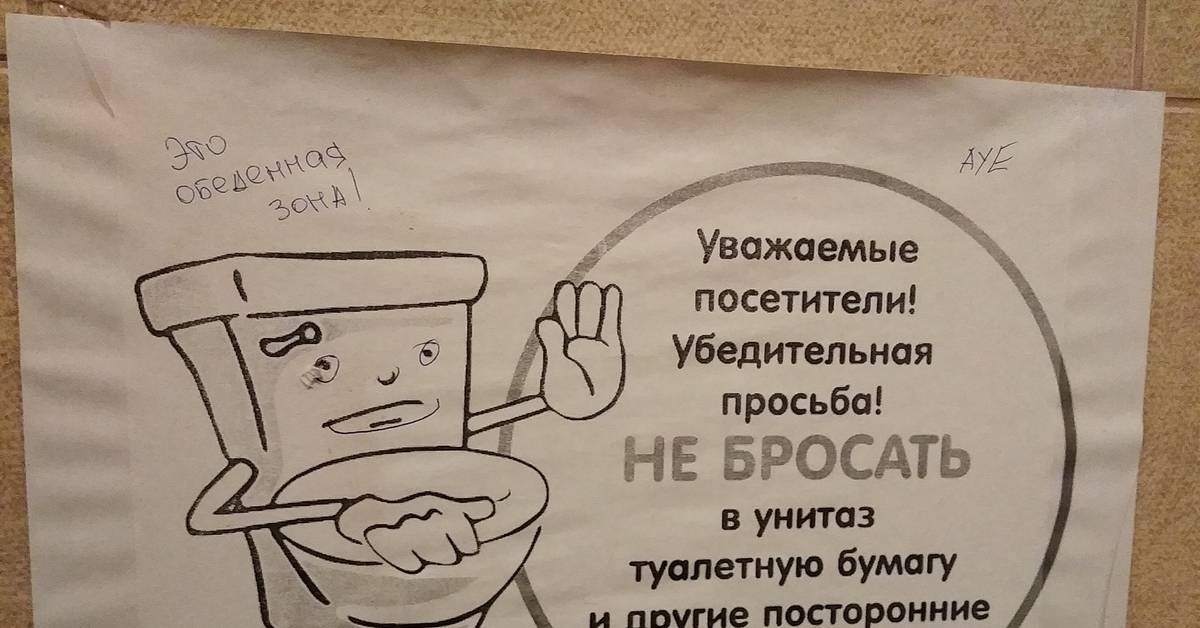 Это
обеденная
зона!
AYE
Уважаемые
посетители!
Убедительная
просьба!
НЕ БРОСАТЬ
в унитаз
туалетную бумагу
и другие посторонние